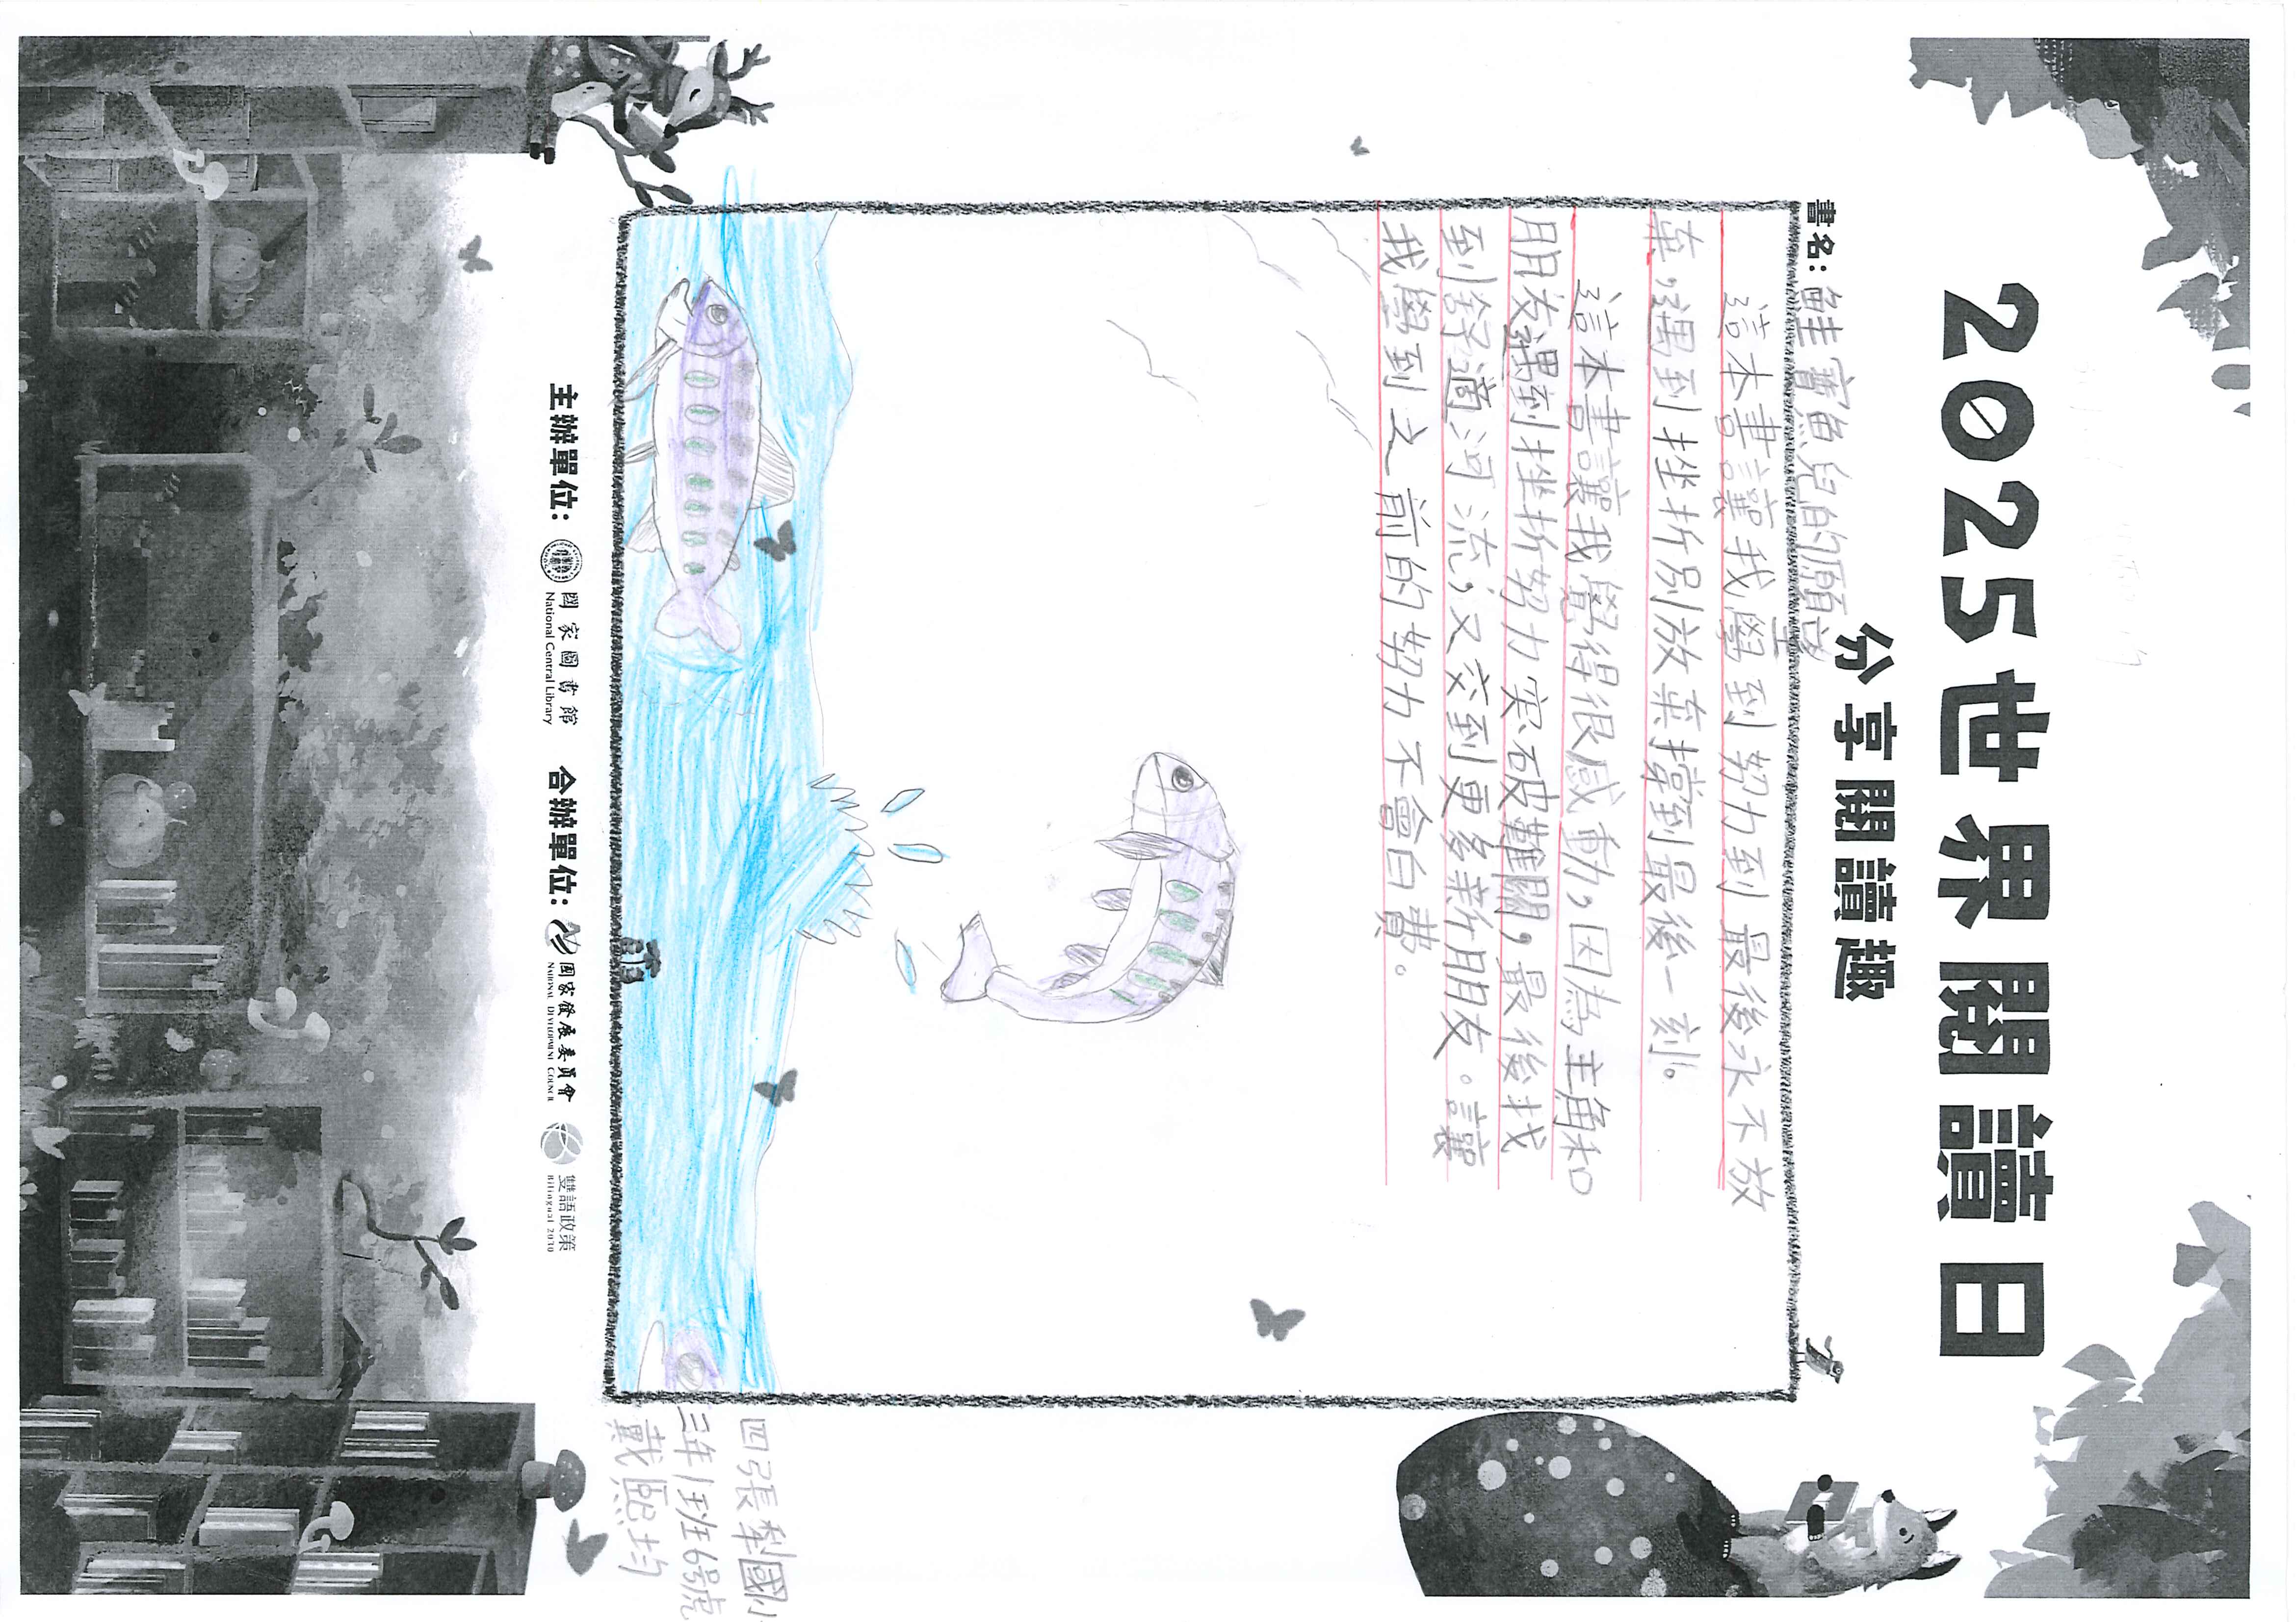 2025世界閱讀日
分享閱讀趣
書名：鮭寶魚兒的願望
這本書讓我學到努力到最後永不放
棄，遇到挫折別放棄撐到最後一刻。
這本書讓我覺得很感動，因為主角和
朋友遇到挫折努力突破難關，最後找
到舒適河流，又交到更多新朋友。讓
我學到之前的努力不會白費。
四張犁國小
三年1班6號
戴熙均
主辦單位：國家圖書館 National Central Library 合辦單位：國家發展委員會 NATIONAL DEVELOPMENT COUNCIL 雙語政策 Bilingual 2030